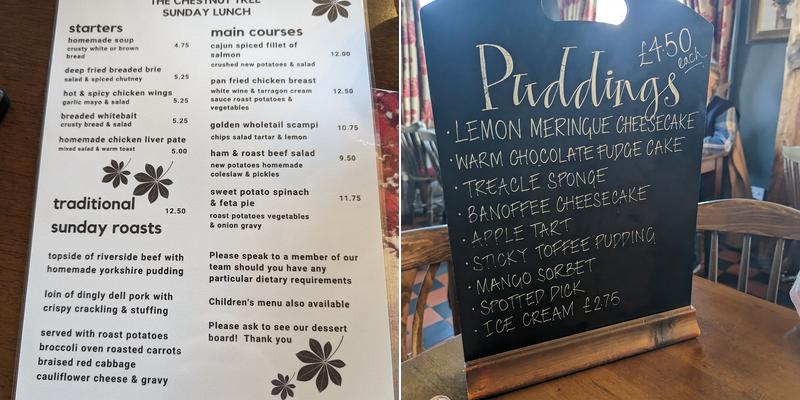 THE CHESTNUT TREE
SUNDAY LUNCH
starters
homemade soup 4.75
crusty white or brown
bread
deep fried breaded brie
salad & spiced chutney 5.25
hot & spicy chicken wings
garlic mayo & salad 5.25
breaded whitebait
crusty bread & salad 5.25
homemade chicken liver pate
mixed salad & warm toast 5.00
traditional 12.50
sunday roasts
topside of riverside beef with
homemade yorkshire pudding
loin of dingly dell pork with
crispy crackling & stuffing
served with roast potatoes
broccoli oven roasted carrots
braised red cabbage
cauliflower cheese & gravy
main courses
cajun spiced fillet of
salmon 12.00
crushed new potatoes & salad
pan fried chicken breast
white wine & tarragon cream 12.50
sauce roast potatoes &
vegetables
golden wholetail scampi
chips salad tartar & lemon 10.75
ham & roast beef salad
new potatoes homemade 9.50
coleslaw & pickles
sweet potato spinach
& feta pie 11.75
roast potatoes vegetables
& onion gravy
Please speak to a member of our
team should you have any
particular dietary requirements
Children's menu also available
Please ask to see our dessert
board! Thank you
£4.50
each
Puddings
· LEMON MERINGUE CHEESECAKE
· WARM CHOCOLATE FUDGE CAKE
· TREACLE SPONGE
· BANOFFEE CHEESECAKE
· APPLE TART
· STICKY TOFFEE PUDDING
· MANGO SORBET
· SPOTTED DICK
· ICE CREAM £2.75